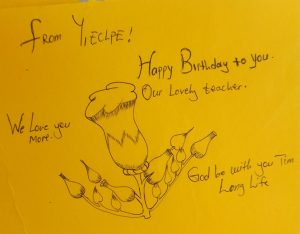 From YIECLPE!
Happy Birthday to you.
Our Lovely teacher.
We Love you
More.
God be with you Tim
Long Life